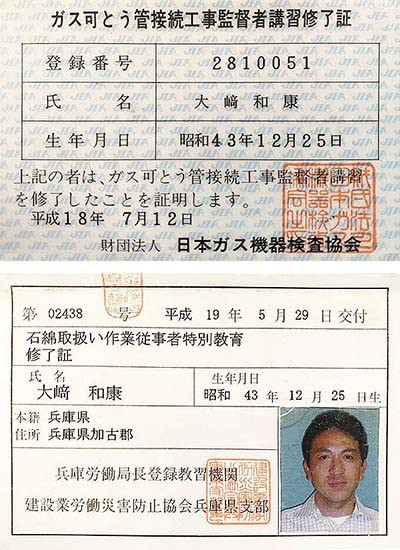 ガス可とう管接続工事監督者講習修了証
登録番号 2810051
氏名 大﨑和康
生年月日 昭和43年12月25日
上記の者は、ガス可とう管接続工事監督者講習
を修了したことを証明します。
平成18年 7月12日
財団法人 日本ガス機器検査協会
第 02438 号 平成 19 年 5 月 29 日 交付
石綿取扱い作業従事者特別教育
修了証
氏名 生年月日
大﨑 和康 昭和 43 年 12 月 25 日生
本籍 兵庫県
住所 兵庫県加古郡
兵庫労働局長登録教習機関
建設業労働災害防止協会兵庫県支部